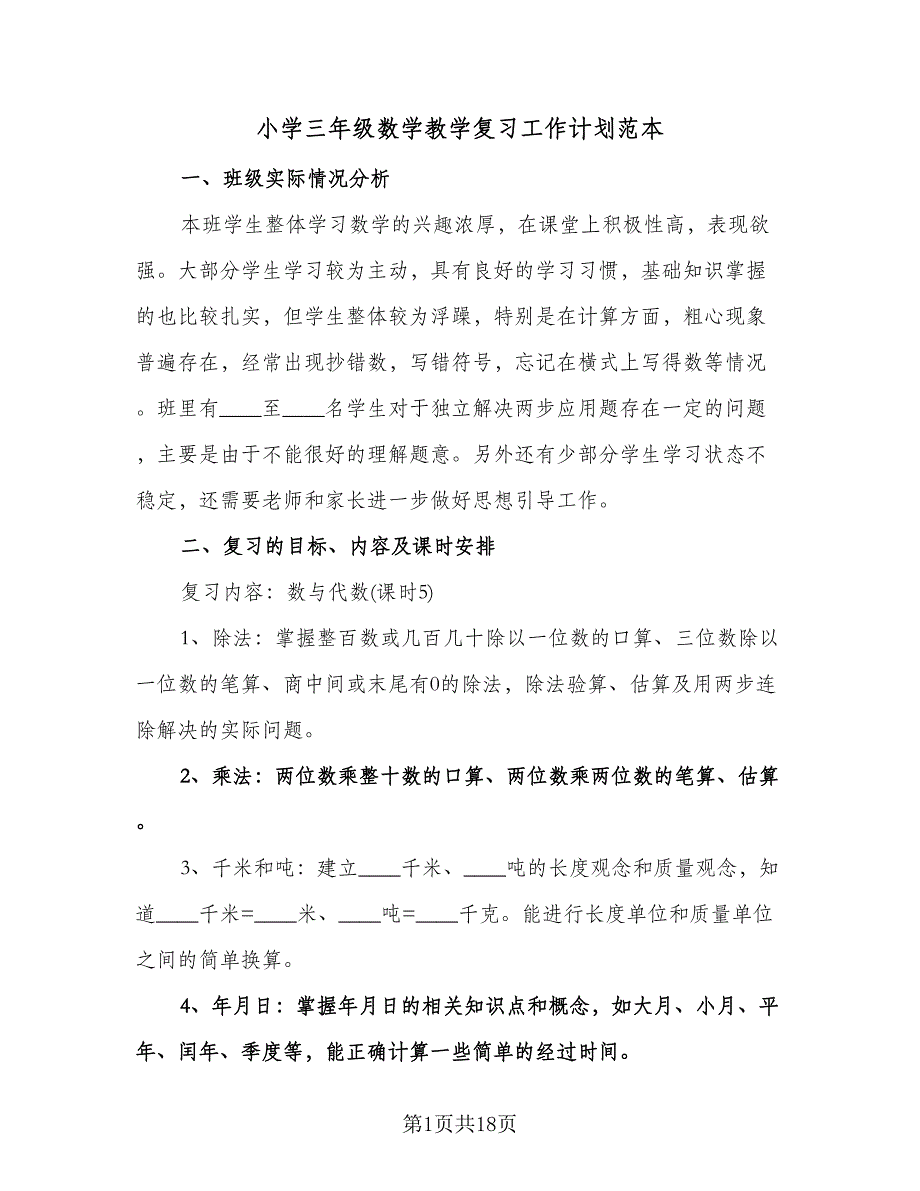 小学三年级数学教学复习工作计划范本
一、班级实际情况分析
本班学生整体学习数学的兴趣浓厚，在课堂上积极性高，表现欲
强。大部分学生学习较为主动，具有良好的学习习惯，基础知识掌握
的也比较扎实，但学生整体较为浮躁，特别是在计算方面，粗心现象
普遍存在，经常出现抄错数，写错符号，忘记在横式上写得数等情况
。班里有____至____名学生对于独立解决两步应用题存在一定的问题
，主要是由于不能很好的理解题意。另外还有少部分学生学习状态不
稳定，还需要老师和家长进一步做好思想引导工作。
二、复习的目标、内容及课时安排
复习内容：数与代数(课时5)
1、除法：掌握整百数或几百几十除以一位数的口算、三位数除以
一位数的笔算、商中间或末尾有0的除法，除法验算、估算及用两步连
除解决的实际问题。
2、乘法：两位数乘整十数的口算、两位数乘两位数的笔算、估算
。
3、千米和吨：建立____千米、____吨的长度观念和质量观念，知
道____千米=____米、____吨=____千克。能进行长度单位和质量单位
之间的简单换算。
4、年月日：掌握年月日的相关知识点和概念，如大月、小月、平
年、闰年、季度等，能正确计算一些简单的经过时间。
第1页共18页